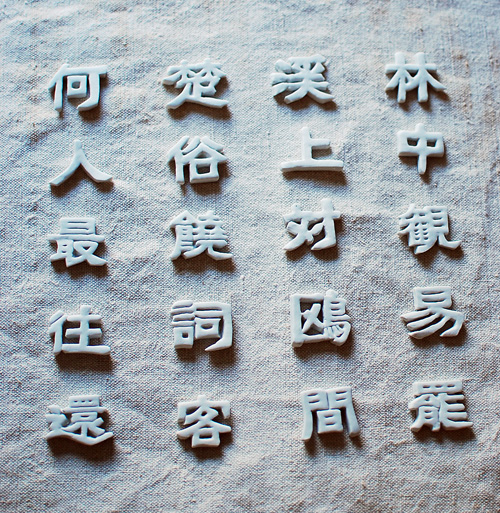 林中觀易罷
溪上対鷗間
楚俗饒詞客
何人最往還